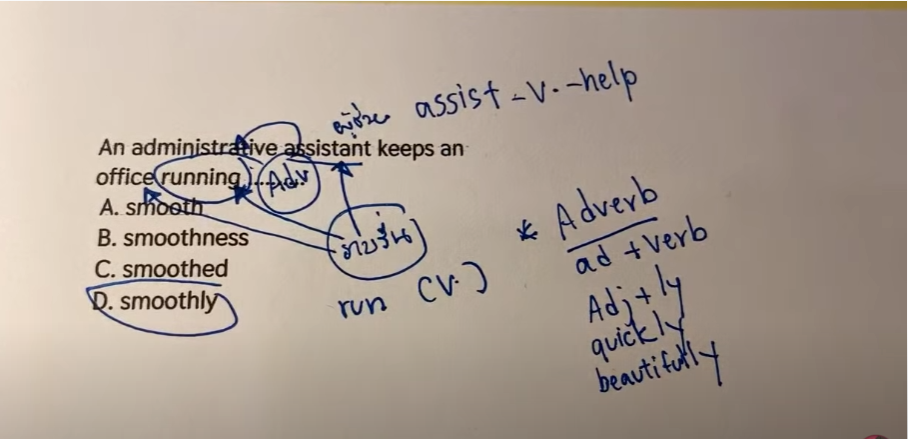 ผู้ช่วย assist - v. - help
An administrative assistant keeps an
office running ........ Adv
A. smooth
B. smoothness
C. smoothed
D. smoothly
ราบรื่น
run (v.)
* Adverb
ad + verb
Adj + ly
quickly
beautifully